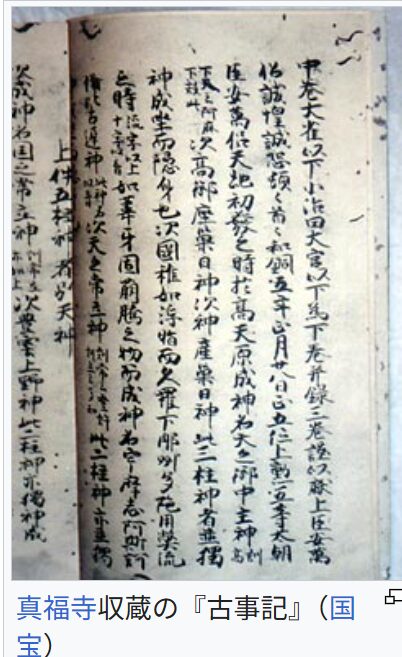 中巻大雀以下小治田大宮以下為下巻并録三巻謹以献上臣安萬
侶誠惶誠恐頓々首々和銅五年正月廿八日正五位上勲五等太朝
臣安萬侶天地初發之時於高天原成神名天之御中主神訓高
下天云阿麻下效此次高御産巣日神次神産巣日神此三柱神者並獨
神成坐而隠身也次國稚如浮脂而久羅下那州多陀用弊流
之時流字以上十字以音如葦牙因萌騰之物而成神名宇麻志阿斯訶
備比古遅神此神名以音次天之常立神 此二柱神亦並獨
上件五柱神者別天神
次成神名国之常立神訓常立亦如上次豊雲上野神此二柱神亦獨神成
真福寺収蔵の『古事記』（国
宝）